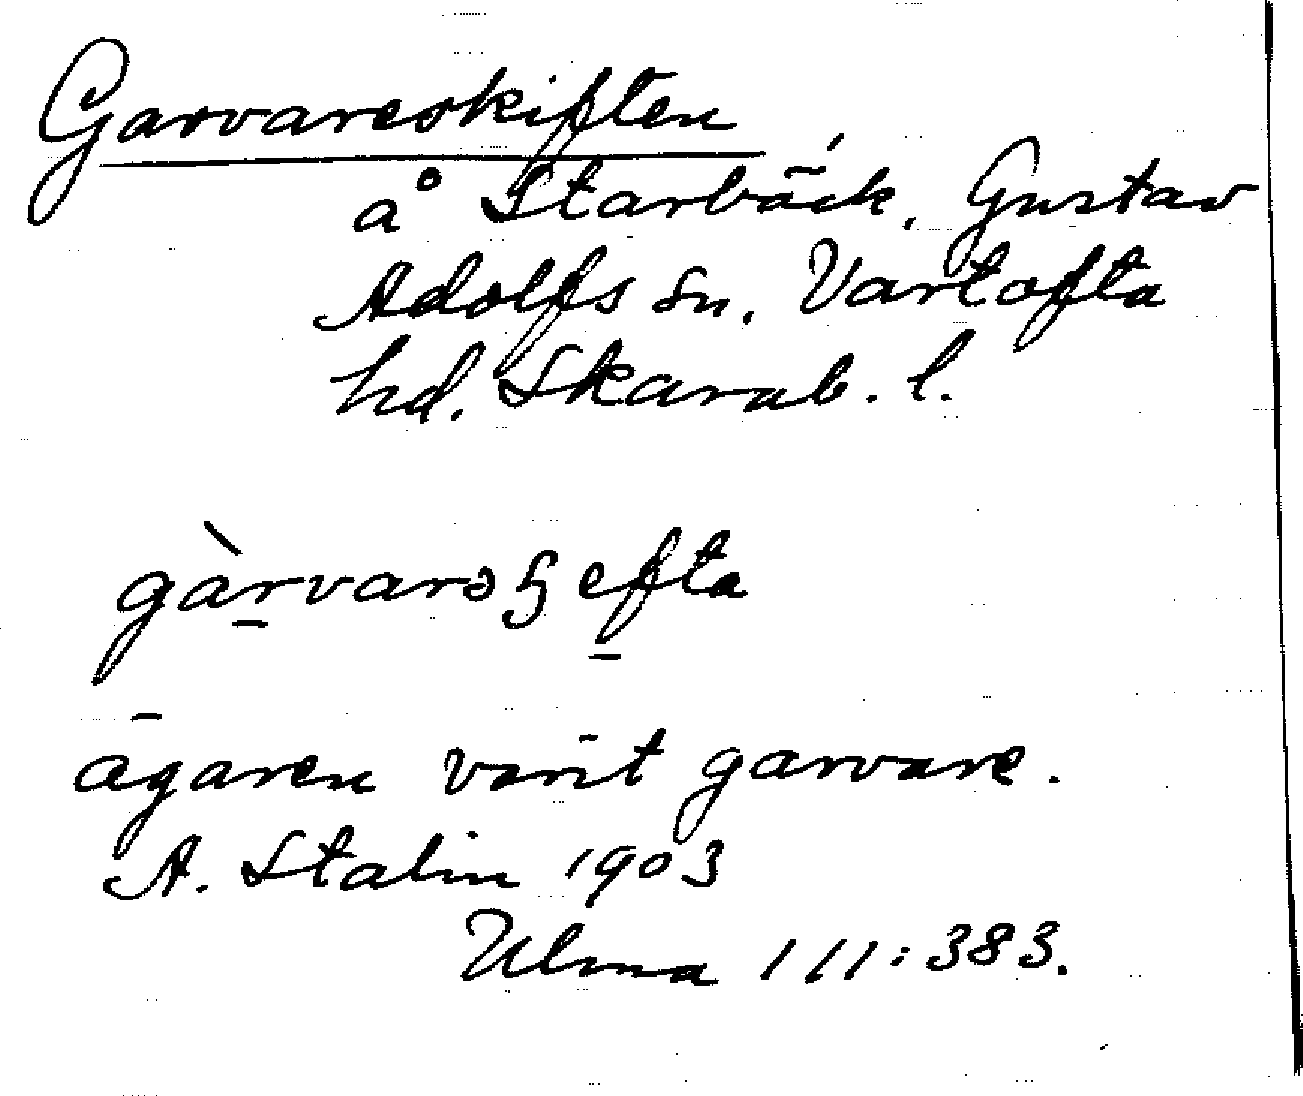 Garvareskiften
å Starbäck, Gustav
Adolfs sn. Vartofta
hd. Skarab. l.
gàrvarə ꜧ efta
ägaren varit garvare.
A. Stalin 1903
Ulma 111:383.